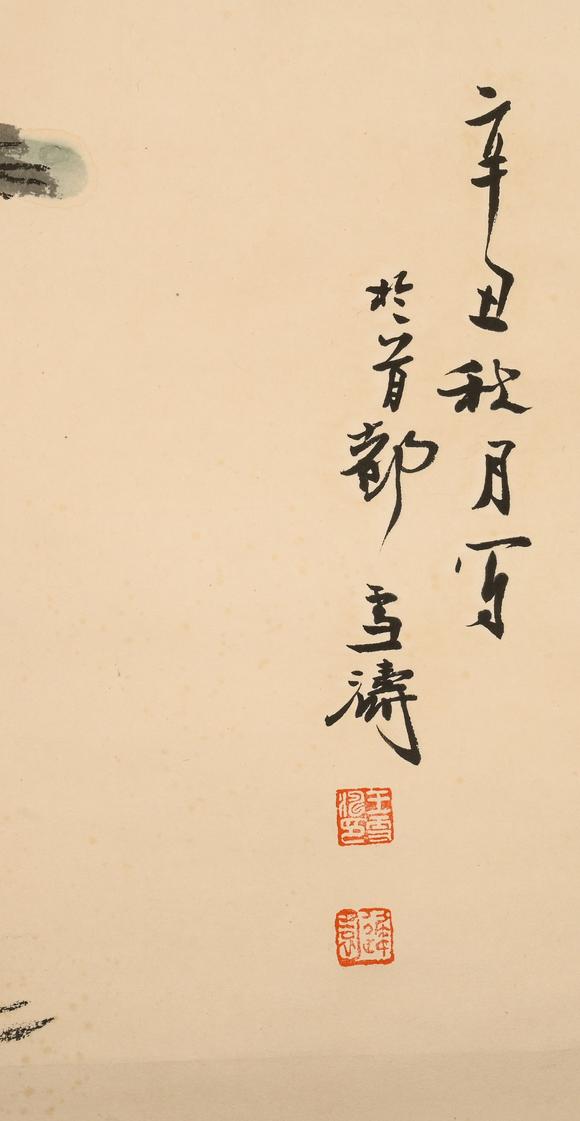 辛丑秋月写
於首都 雪濤
王雪濤印